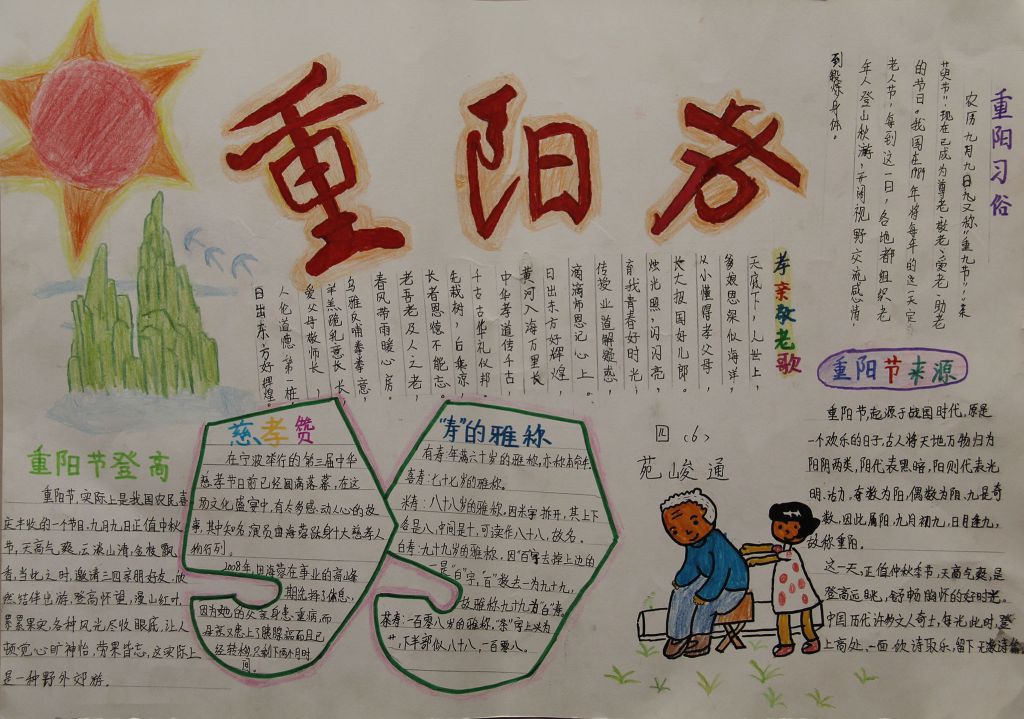 重阳节
重阳习俗
农历九月九日九又称“重九节”“来
萸节”，现在已成为尊老敬老、爱老、助老
的节日。我国在1989年将每年的这一天定
老人节，每到这一日，各地都组织老
年人登山秋游，开阔视野交流感情，
到锻炼身体。
孝亲敬老歌
天底下，人世上，
爹娘恩深似海洋，
从小懂得孝父母，
长大报国好儿郎。
烛光照，闪闪亮，
育我青春好时光，
传授业道解疑惑，
滴滴师恩记心上。
日出东方好辉煌，
黄河入海万里长
中华孝道传千古，
千古古华礼仪邦。
先栽树，后乘凉，
长者恩惠不能忘。
老吾老及人之老，
春风带雨暖心房。
乌雅反哺拳拳意，
羊羔跪乳意长长，
爱父母敬师长，
人伦道德第一桩，
日出东方好辉煌。
重阳节来源
重阳节，起源于战国时代，原是
一个欢乐的日子，古人将天地万物归为
阴阳两类，阴代表黑暗，阳则代表光
明、活力，奇数为阳，偶数为阴，九是奇
数，因此属阳，九月初九，日月逢九，
故称重阳。
这一天，正值仲秋季节，天高气爽，是
登高远眺，舒畅胸怀的好时光。
中国历代许多文人奇士，每光此时，登
上高处，一面饮诗取乐，留下
四（6）
苑峻通
重阳节登高
重阳节，实际上是我国农民喜
定丰收的一个节日，九月九日正值中秋
节，天高气爽，云淡山清，金桂飘
香，当此之时，邀请三四亲朋好友，欣
然结伴出游，登高怀望，漫山红叶，
累累果实，各种风光尽收眼底，让人
顿觉心旷神怡，劳累皆忘，这实际上
是一种野外郊游。
慈孝赞
在宁波举行的第三届中华
慈孝节日前已经圆满落幕，在这
场文化盛宴中，有太多感动人心的故
事，其中知名演员由海蓉跻身十大慈孝人
物行列。
2008年，田海蓉在事业的高峰
期选择了休息，
因为她的父亲身患重病，而
母亲又患上了胰腺癌而且已
经转移，只剩下两个月时
间。
“寿”的雅称
有寿：年满六十岁的雅称，亦称本命年
喜寿：七十七岁的雅称。
米寿：八十八岁的雅称，因米字拆开，其上下
各是八，中间是十，可读作八十八，故名。
白寿：九十九岁的雅称，因“百”字去掉上边的
一是“白”字，“百”数去一为九十九，
故雅称九十九为百寿
茶寿：一百零八岁的雅称，“茶”字上头为
廿，下半部似八十八，一百零八。